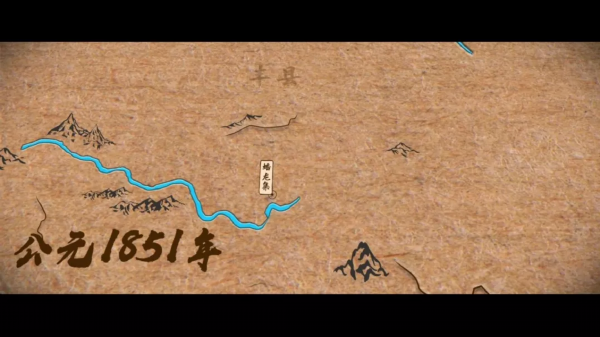 丰县
蟠龙集
公元1851年